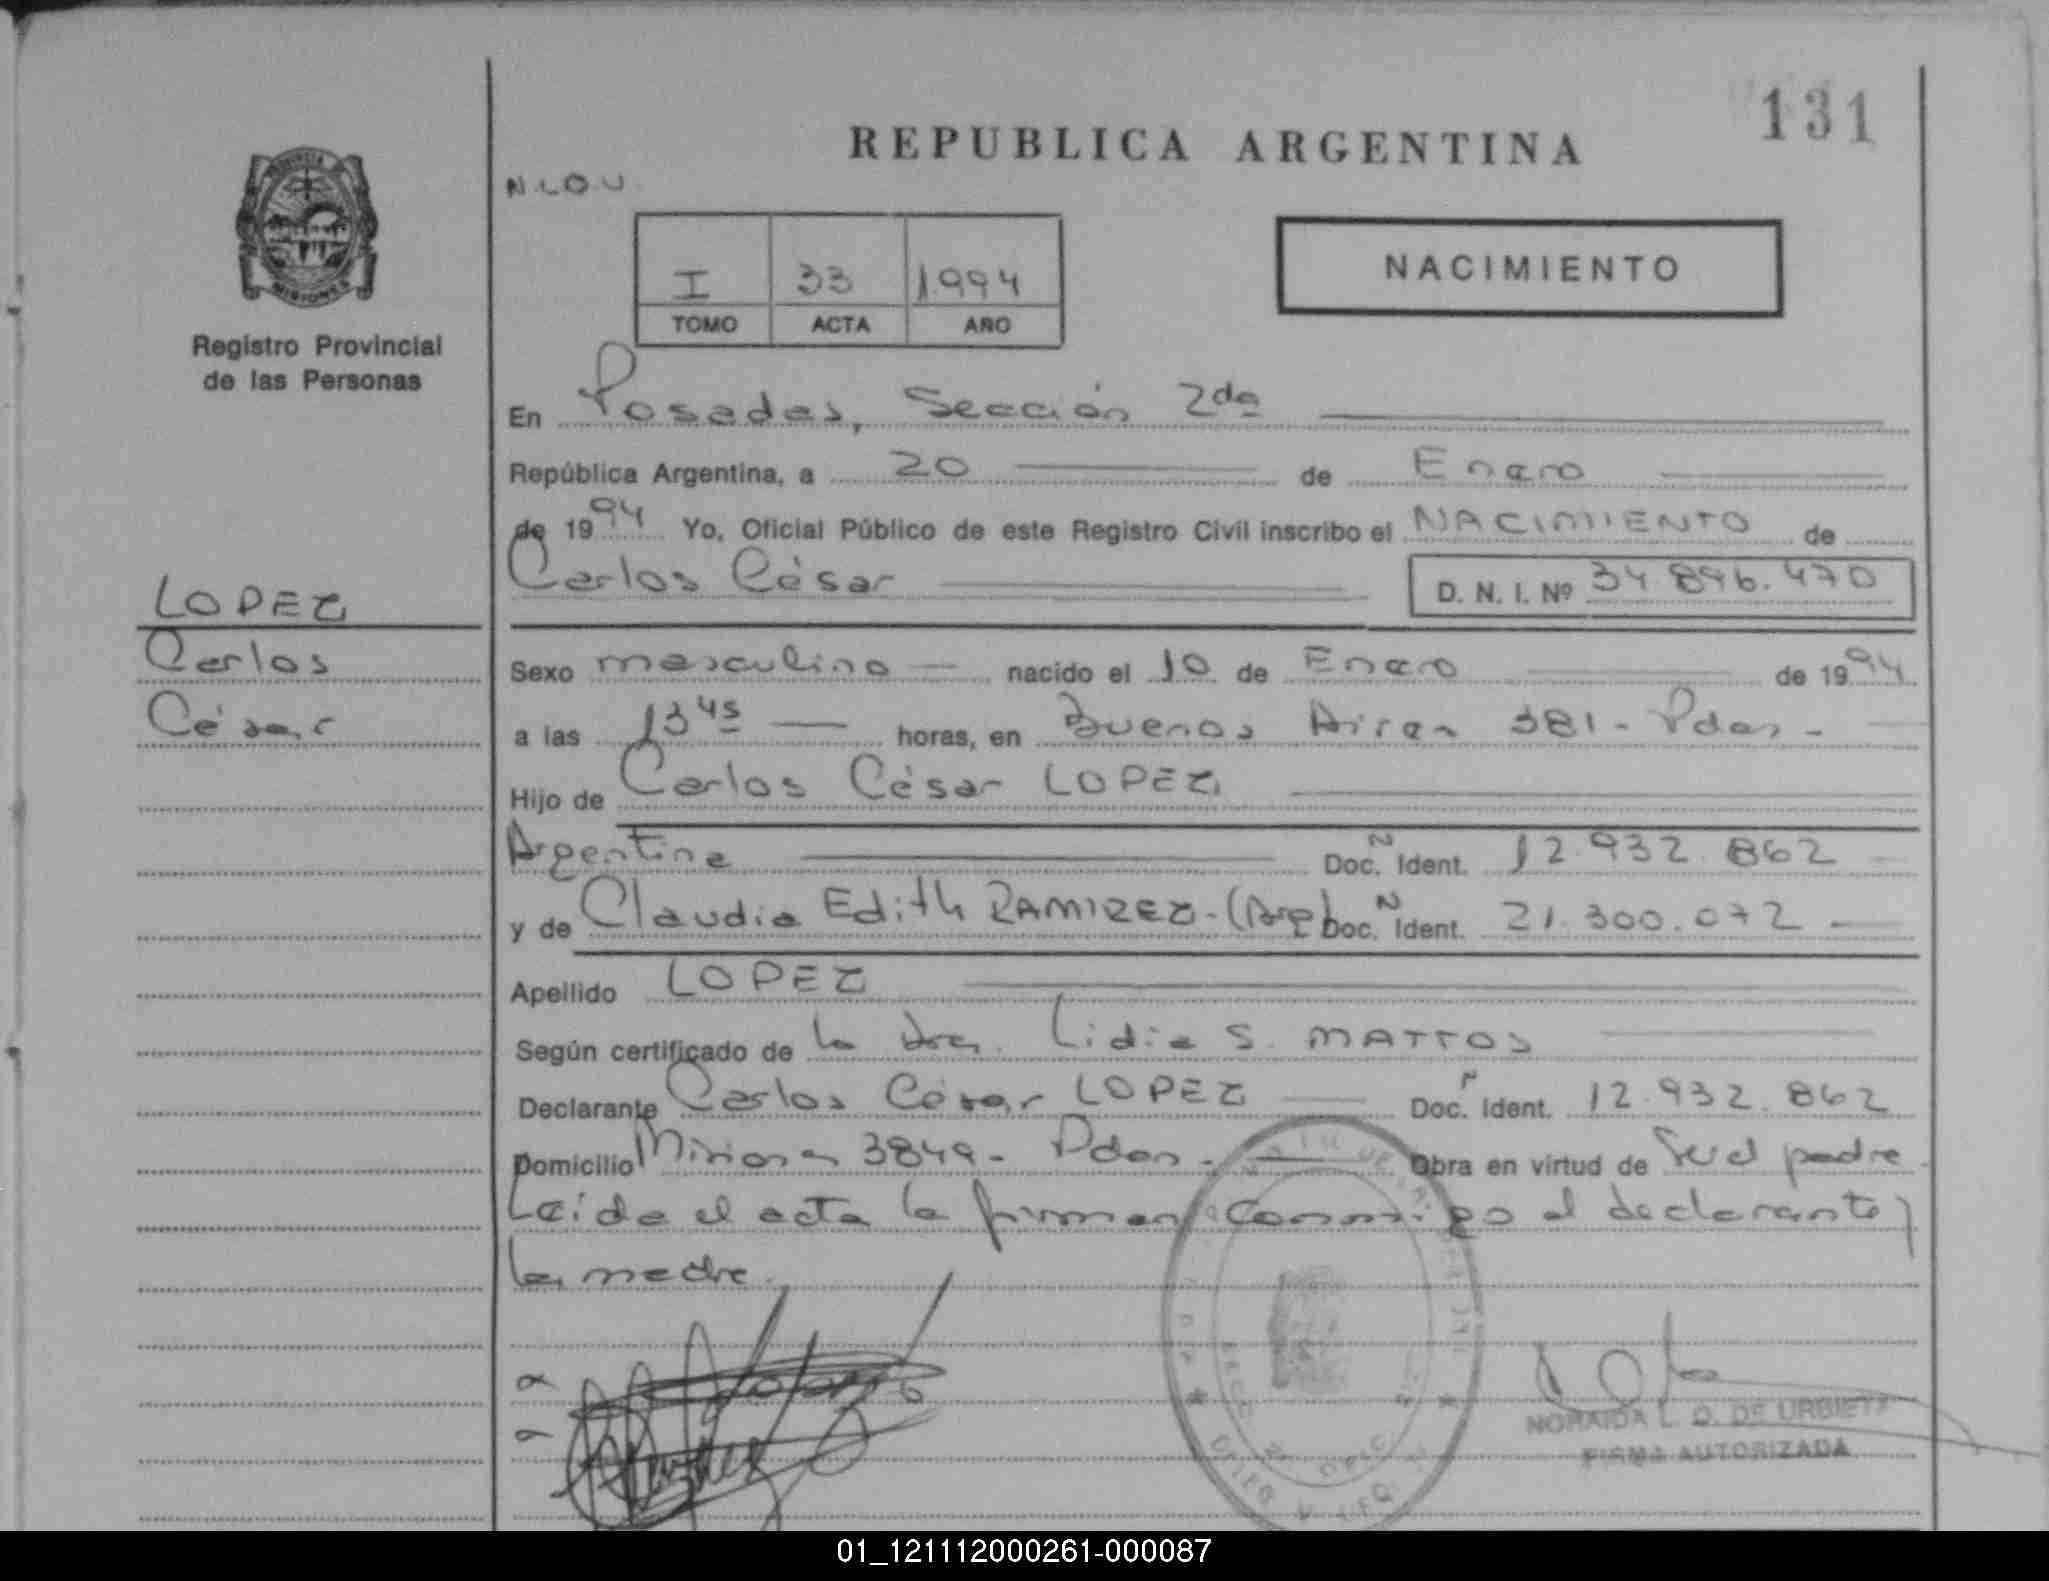 131
REPUBLICA ARGENTINA
N.L.O.U.
PROVINCIA
MISIONES
NACIMIENTO
I 33 1994
TOMO ACTA AÑO
Registro Provincial
de las Personas
En Posadas, Sección 2da
República Argentina, a 20 de Enero
de 1994 Yo, Oficial Público de este Registro Civil inscribo el NACIMIENTO de
Carlos César D. N. I. Nº 34 896.470
LOPEZ
Carlos
César
Sexo masculino nacido el 10 de Enero de 1994
a las 13 45 horas, en Buenos Aires 381 - Pdas -
Hijo de Carlos César LOPEZ
Argentina Doc. Ident. 12.932.862
y de Claudia Edith RAMIREZ - (Arg) Doc. Ident. 21.300.072
Apellido LOPEZ
Según certificado de la Dra. Lidia S. MATTOS
Declarante Carlos César LOPEZ Doc. Ident. 12.932.862
Domicilio Misiones 3849 - Pdas - Obra en virtud de Ser el padre
Leída el acta la firman conmigo el declarante y
la madre.
NORAIDA L. O. DE URBIETA
FIRMA AUTORIZADA
01_121112000261-000087